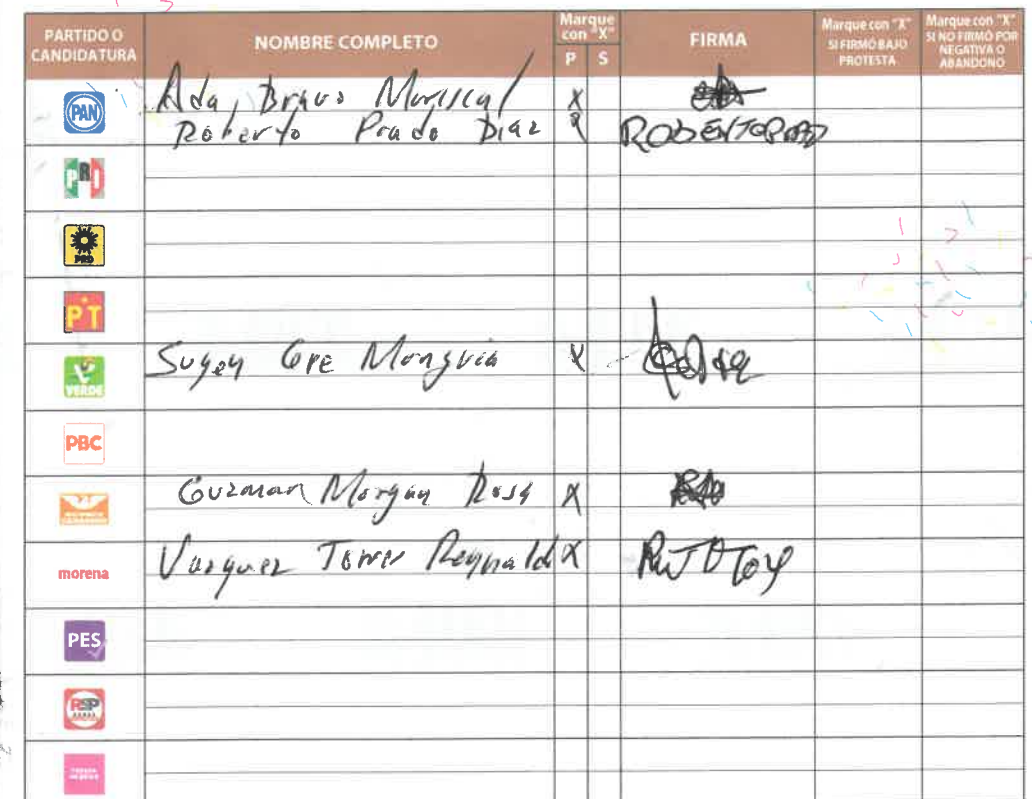 PARTIDO O CANDIDATURA
NOMBRE COMPLETO
Marque con "X"
P S
FIRMA
Marque con "X" SI FIRMÓ BAJO PROTESTA
Marque con "X" SI NO FIRMÓ POR NEGATIVA O ABANDONO
PAN
Ada, Bravo Mariscal X
Roberto Prado Diaz
PRI
PRD
PT
VERDE
Sugey X
PBC
Guzman Morgan Rosa X
morena
Vazquez Torres Reynaldo X
PES
RSP